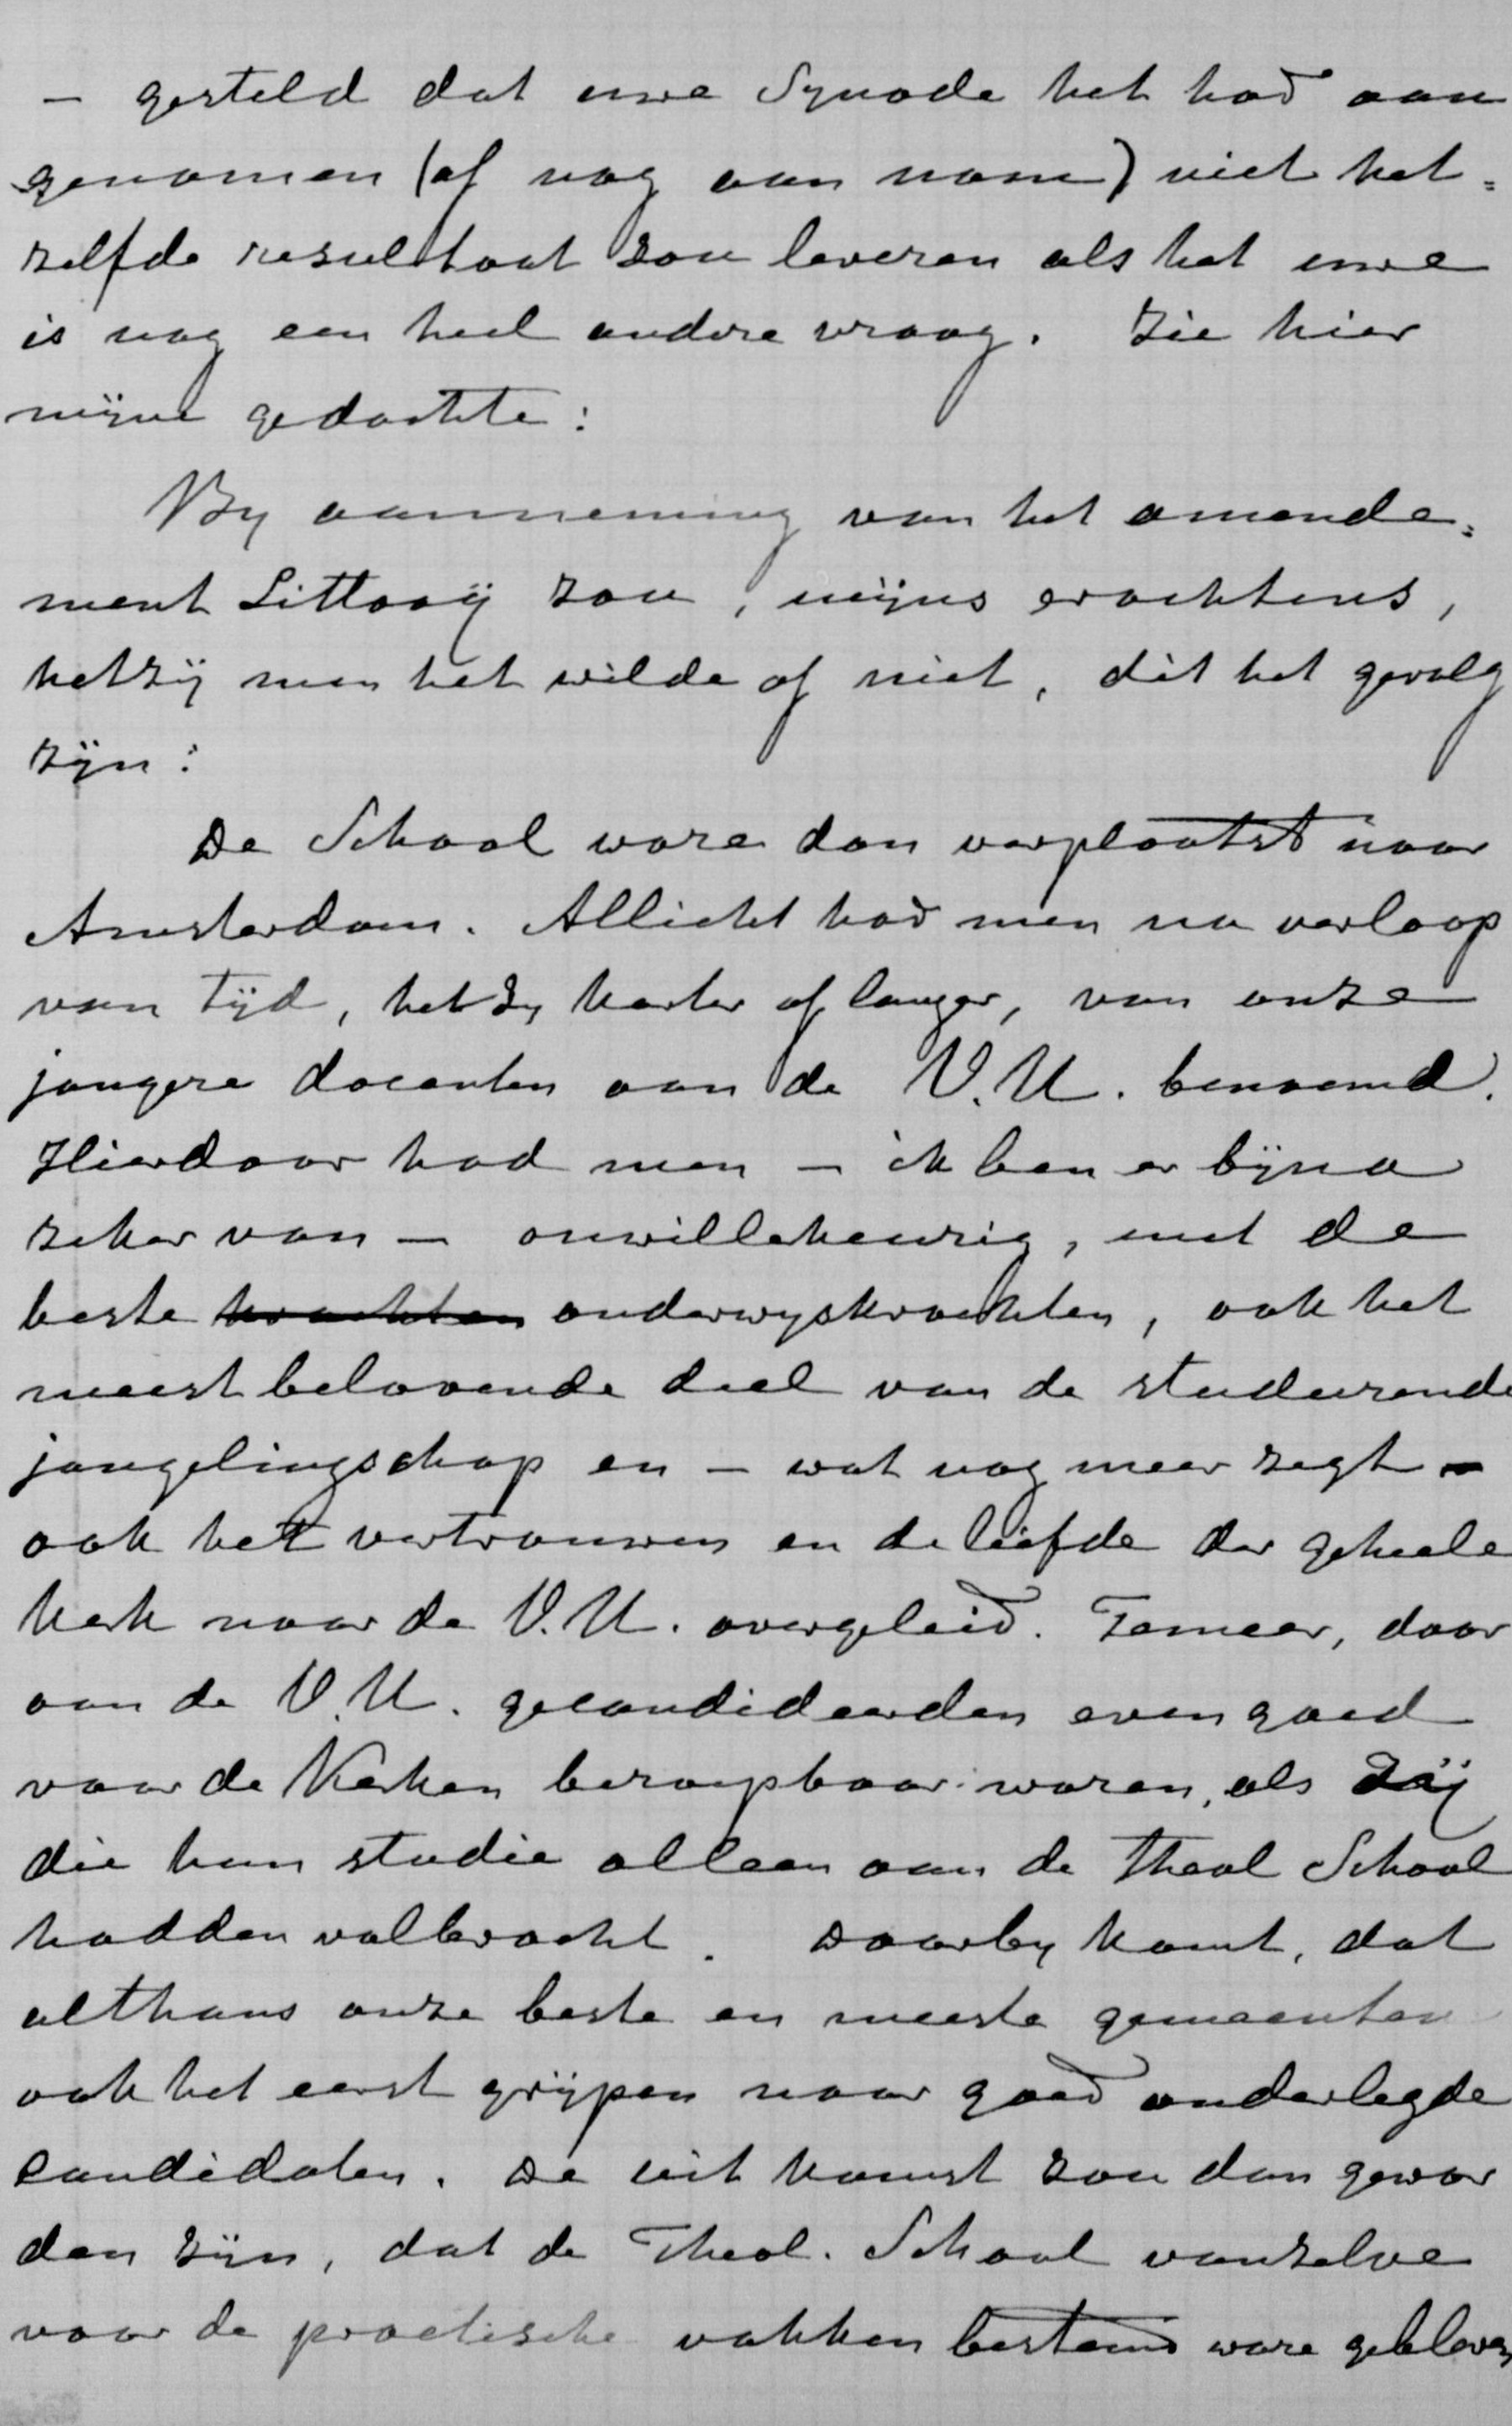 – gesteld dat uwe Synode het had aan
genomen (of nog aan name) niet het=
zelfde resultaat zou leveren als het uwe
is nog een heel andere vraag. Zie hier
mijne gedachte:
By aanneming van het amende=
ment Littooij zou, mijns erachtens,
hetzij men het wilde of niet, dit het gevolg
zijn:
De School ware dan verplaatst naar
Amsterdam. Allicht had men na verloop
van tijd, het zy korter of langer, van onze
jongere docenten aan de V.U. benoemd.
Hierdoor had men – ik ben er bijna
zeker van – onwillekeurig, met de
beste krachten onderwyskrachten, ook het
meest belovende deel van de studeerende
jongelingschap en – wat nog meer zegt –
ook het vertrouwen en de liefde der geheele
kerk naar de V.U. overgeleid. Temeer, daar
aan de V.U. gecandideerden even goed
voor de Kerken beroepbaar waren, als zij
die hun studie alleen aan de Theol School
hadden volbracht. Daarby komt, dat
althans onze beste en meeste gemeenten
ook het eerst grijpen naar goed onderlegde
candidaten. De uit komst zou dan gewor
den zijn, dat de Theol. School vanzelve
voor de practische vakken bestemd ware gebleven